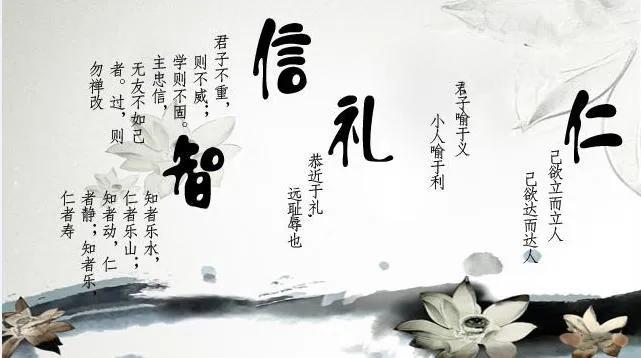 仁
己欲立而立人
己欲达而达人
君子喻于义
小人喻于利
礼
恭近于礼，
远耻辱也
信
君子不重，
则不威；
学则不固。
主忠信，
无友不如己
者。过，则
勿禅改
智
知者乐水，
仁者乐山；
知者动，仁
者静；知者乐，
仁者寿